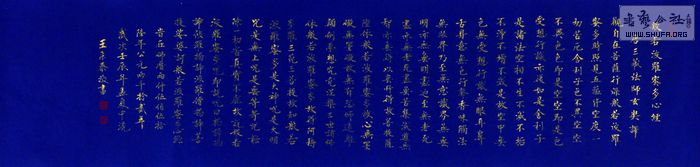 般若波羅蜜多心經
三藏法師玄奘譯
觀自在菩薩行深般若波羅
蜜多時照見五蘊皆空度一
切苦厄舍利子色不異空空
不異色色即是空空即是色
受想行識亦復如是舍利子
是諸法空相不生不滅不垢
不淨不增不減是故空中無
色無受想行識無眼耳鼻
舌身意無色聲香味觸法
無眼界乃至無意識界無無
明亦無無明盡乃至無老死
亦無老死盡無苦集滅道無
智亦無得以無所得故菩提薩
埵依般若波羅蜜多故心無罣
礙無罣礙故無有恐怖遠離
顛倒夢想究竟涅槃三世諸
佛依般若波羅蜜多故得阿耨
多羅三藐三菩提故知般若
波羅蜜多是大神咒是大明
咒是無上咒是無等等咒能
除一切苦真實不虛故說般若
波羅蜜多咒即說咒曰揭諦
揭諦波羅揭諦波羅僧揭諦菩
提薩婆訶般若波羅蜜多心經
歲次壬辰年
敬書
書藝公社
WWW.SHUFA.ORG